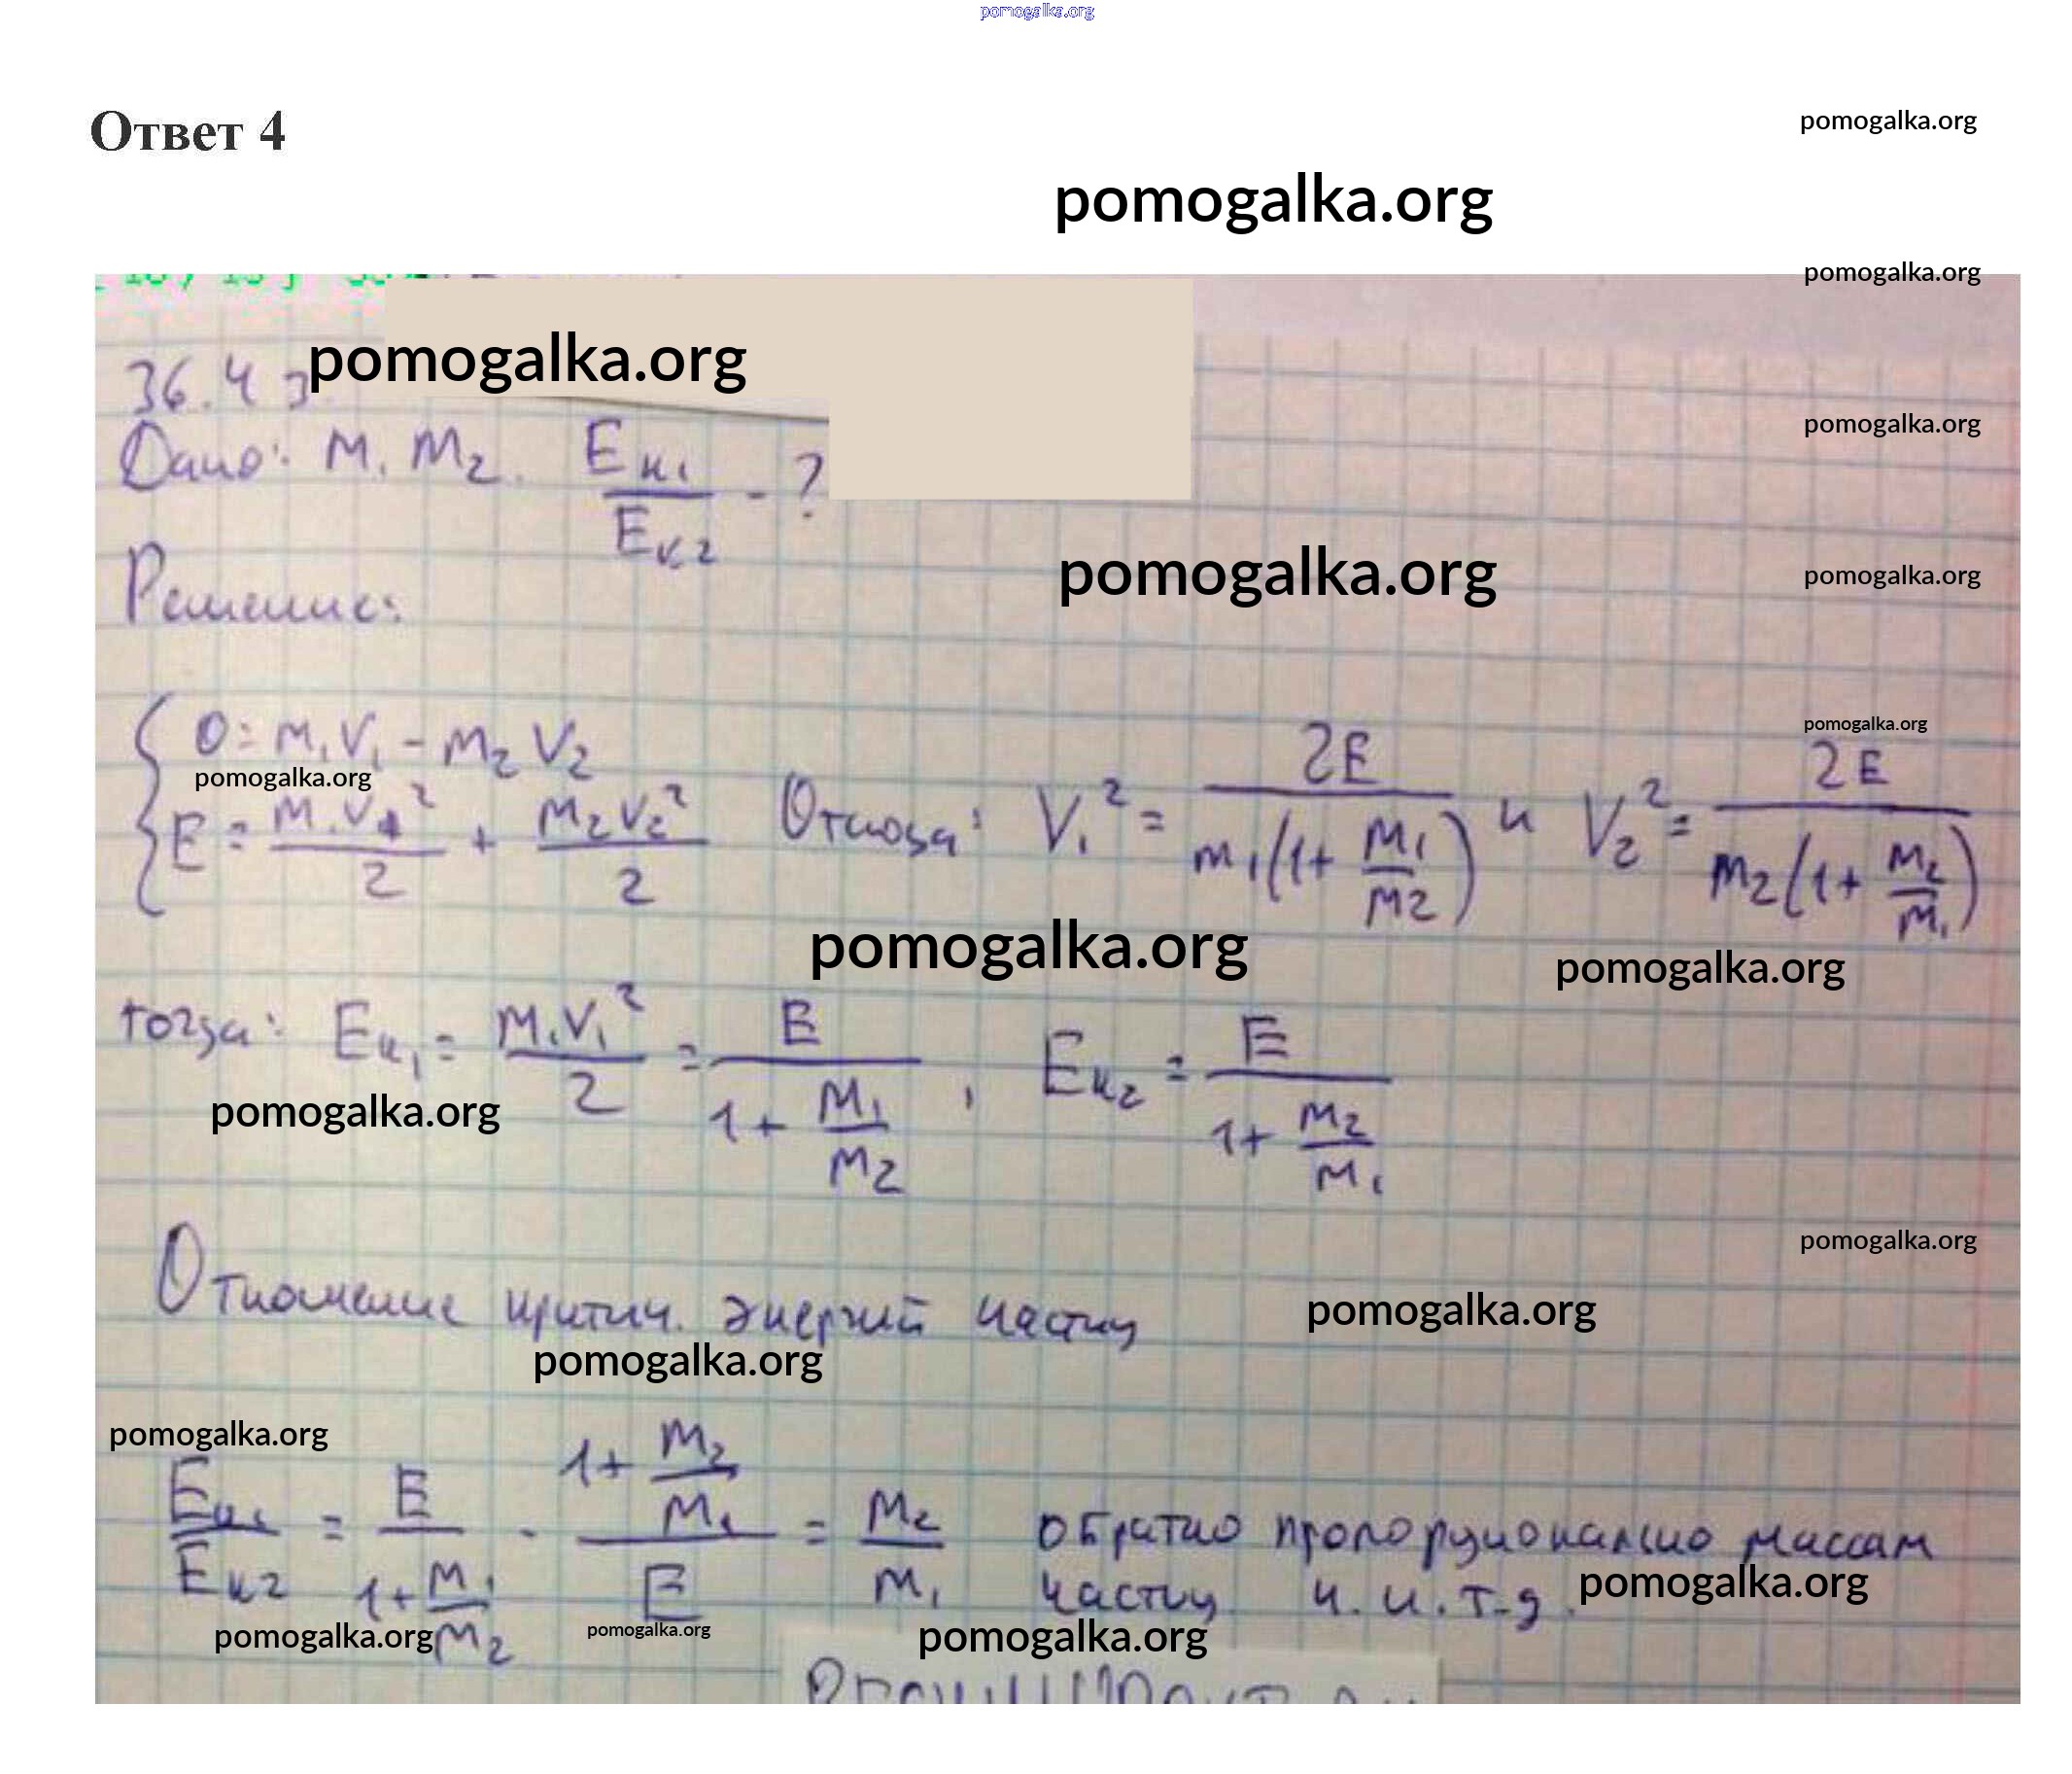 pomogalka.org
Ответ 4
pomogalka.org
pomogalka.org
pomogalka.org
36.4 pomogalka.org
Дано: m₁ m₂. Eк₁/Eк₂ - ?
pomogalka.org
pomogalka.org
pomogalka.org
Решение:
pomogalka.org
{ 0 = m₁V₁ - m₂V₂
pomogalka.org
E = m₁V₁²/2 + m₂V₂²/2 Отсюда: V₁² = 2E/(m₁(1+m₁/m₂)) и V₂² = 2E/(m₂(1+m₂/m₁))
pomogalka.org
pomogalka.org
тогда: Eк₁ = m₁V₁²/2 = E/(1+m₁/m₂), Eк₂ = E/(1+m₂/m₁)
pomogalka.org
pomogalka.org
Отношение критич. энергий частиц
pomogalka.org
pomogalka.org
pomogalka.org
Eк₁/Eк₂ = E/(1+m₁/m₂) · (1+m₂/m₁)/E = m₂/m₁ обратно пропорционально массам
частиц ч.и.т.д. pomogalka.org
pomogalka.org
pomogalka.org
pomogalka.org